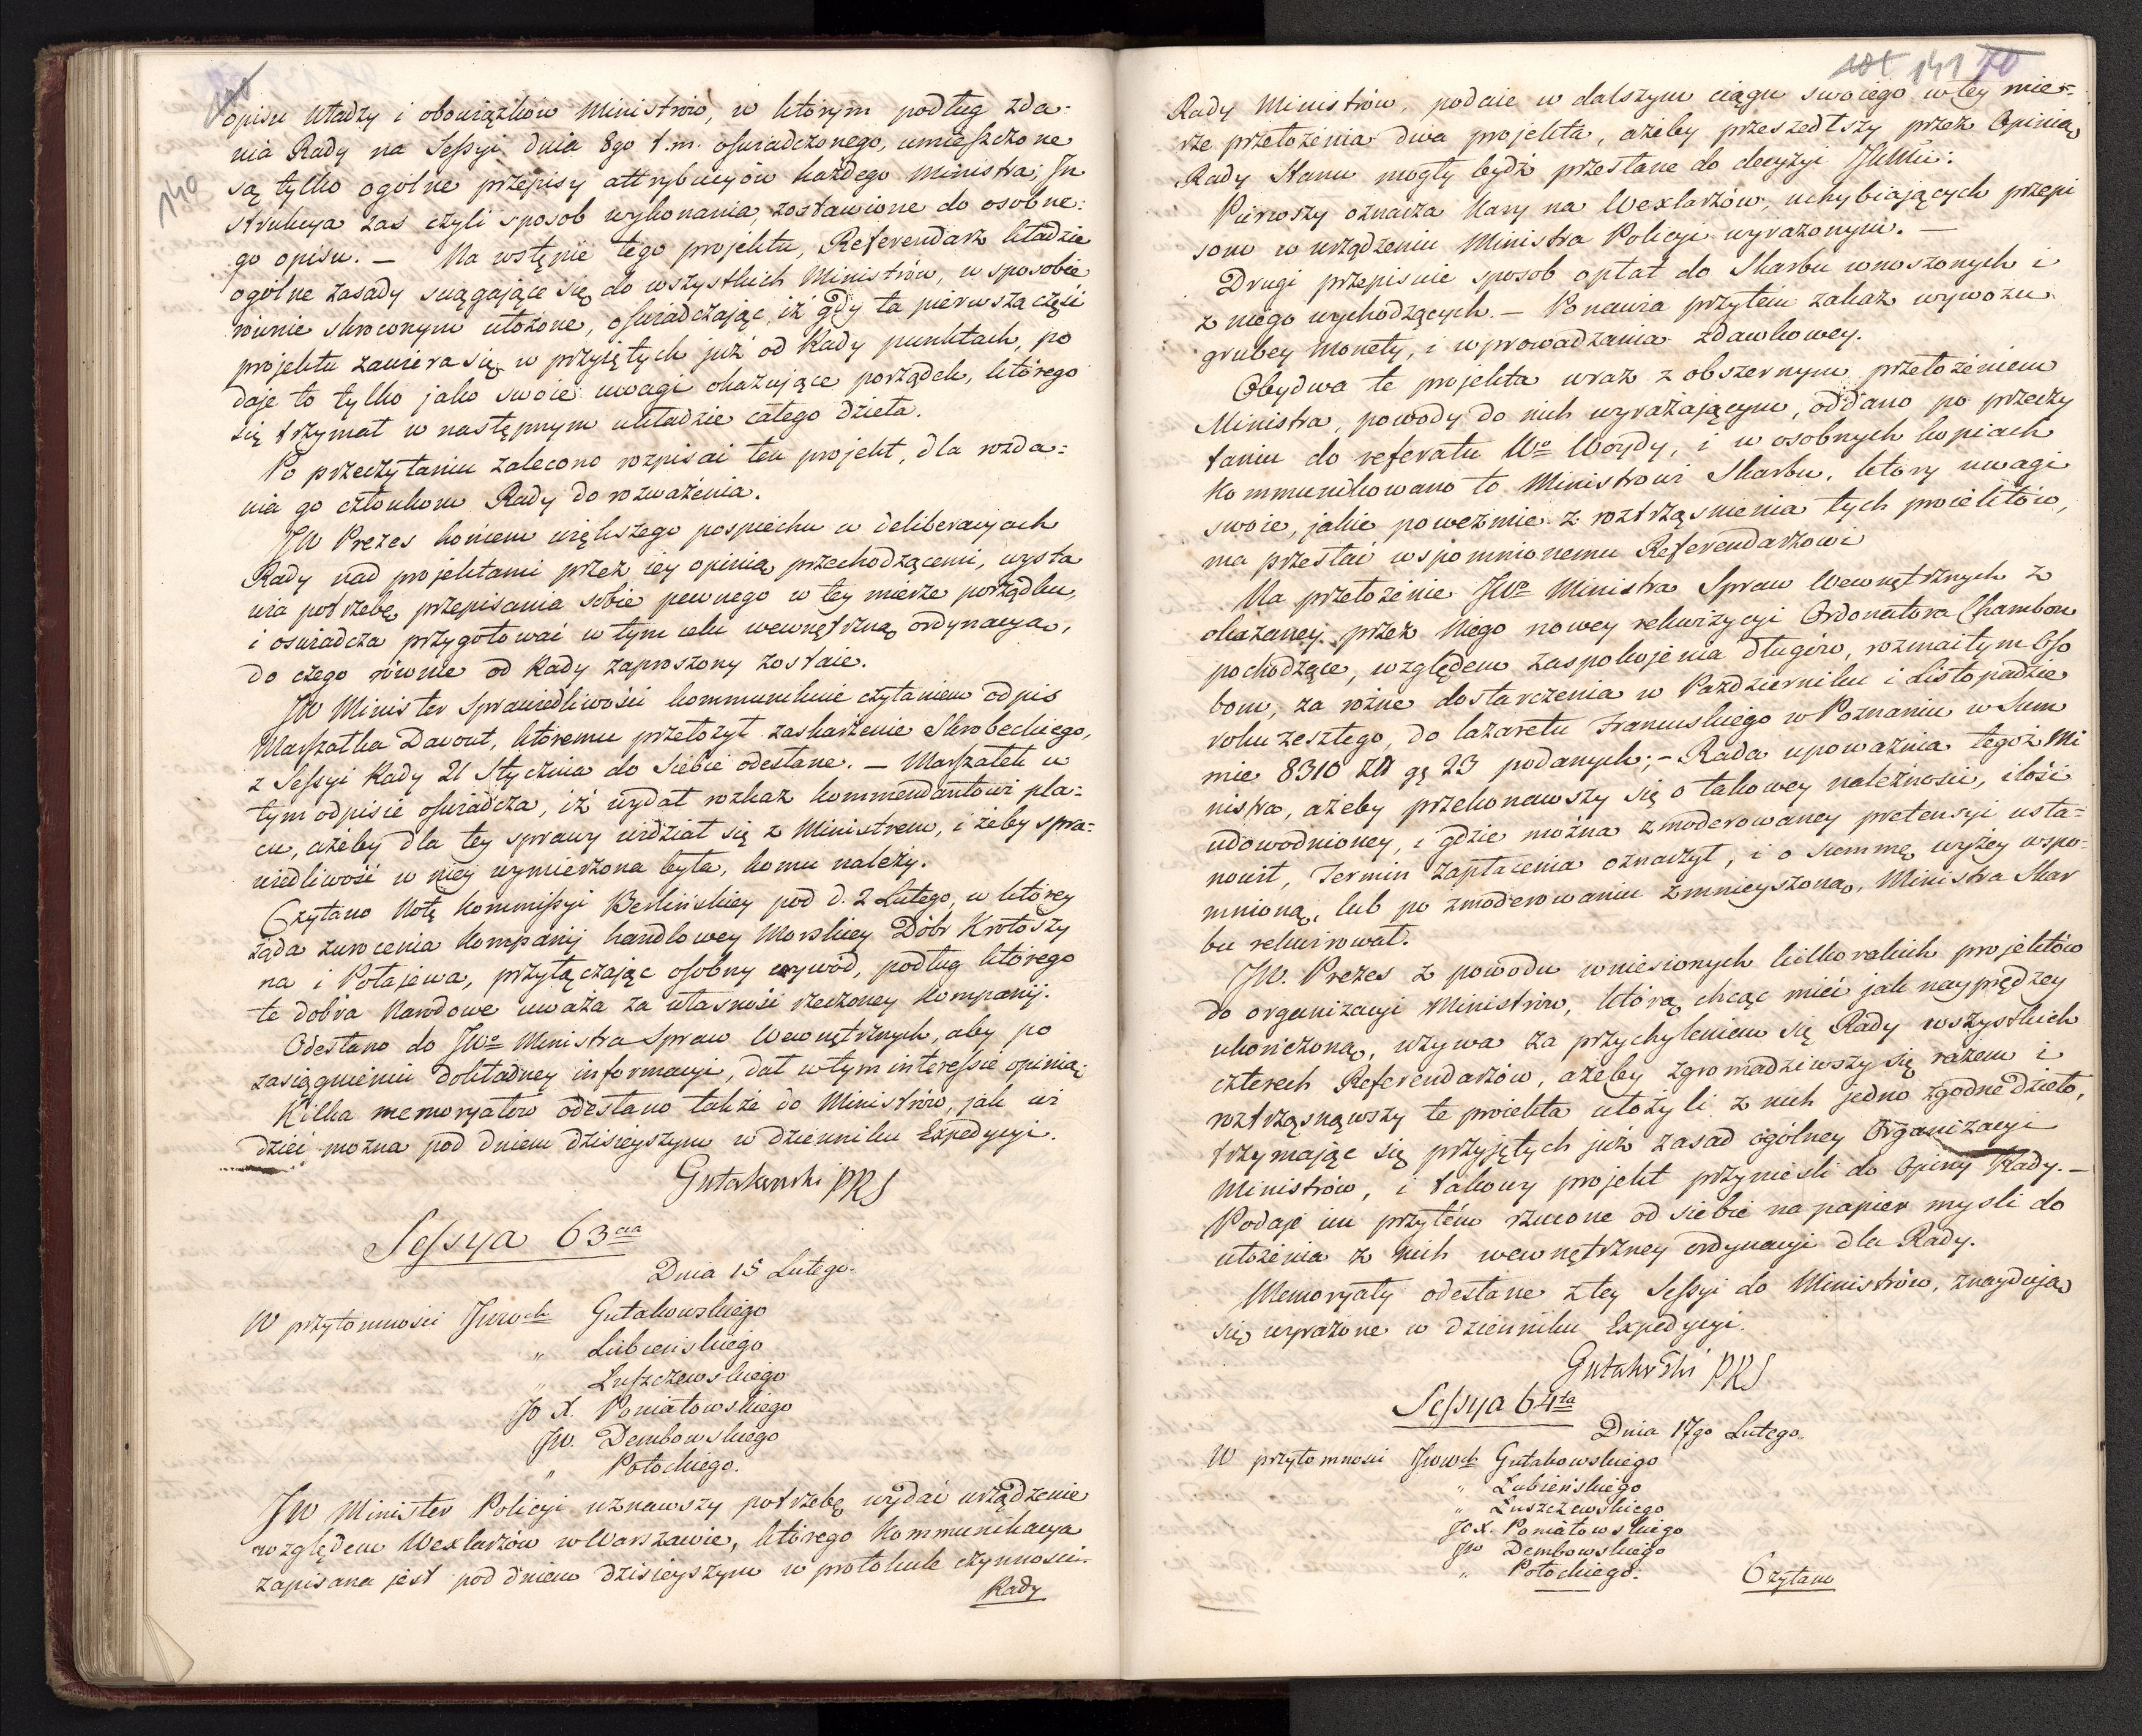 140
opisu władzy i obowiązków Ministrów, w którym podług zda=
nia Rady na Sessyi dnia 8go t.m. oswiadczonego, umieszczone
są tylko ogólne przepisy attrybucyów każdego Ministra; In
strukcya zas czyli sposob wykonania, zostawione do osobne=
go opisu. — Na wstępie tego projektu, Referendarz kładzie
ogólne zasady sciągające się do wszystkich Ministrów, w sposobie
równie skroconym ułożone, oswiadczając, iż gdy ta pierwsza częsć
projektu zawiera się w przyjętych już od Rady punktach, po
daje to tylko jako swoie uwagi okazujące porządek, którego
się trzymał w następnym układzie całego dzieła.
Po przeczytaniu zalecono rozpisać ten projekt, dla rozda=
nia go członkom Rady do rozważenia.
JW Prezes koncem większego pospiechu w deliberacyach
Rady nad projektami przez iey opinią przechodzącemi, wysta
wia potrzebę przepisania sobie pewnego w tey mierze porządku,
i oswiadcza przygotować w tym celu wewnętrzną ordynacyą,
do czego równie od Rady zaproszony zostaie.
JW Minister Sprawiedliwości kommunikuie czytaniem odpis
Marszałka Davout, któremu przełożył zaskarżenie Skrobeckiego,
z Sessyi Rady 21 Stycznia do Siebie odesłane. — Marszałek w
tym odpisie oswiadcza, iż wydał rozkaz kommendantowi pla=
cu, ażeby dla tey sprawy widział się z Ministrem, i żeby spra=
wiedliwość w niey wymierzona była, komu należy.
Czytano Notę Kommissyi Berlińskiey pod d. 2 Lutego, w którey
żąda zwrocenia Kompanij handlowey Morskiey Dóbr Krotoszy
na i Potajewa, przyłączając osobny wywód, podług którego
te dobra Narodowe uważa za własność rzeczoney Kompanij.
Odesłano do JWo Ministra Spraw Wewnętrznych, aby po
zasiągnieniu dokładney informacyi, dał w tym interessie opinią;
Kilka memoryałów odesłano także do Ministrów, jak wi
dzieć można pod dniem dzisieyszym w dzienniku Expedycyi.
Gutakowski PRS
Sessya 63cia
Dnia 15 Lutego.
W przytomności JWWch Gutakowskiego
" Łubieńskiego
" Łuszczewskiego
JO X. Poniatowskiego
JW. Dembowskiego
" Potockiego.
JW Minister Policyi uznawszy potrzebę wydać urządzenie
względem Wexlarzów w Warszawie, którego Kommunikacya
zapisana jest pod dniem dzisieyszym w protokule czynności
Rady
141 70
Rady Ministrów, podaie w dalszym ciągu swoiego w tey mie=
rze przełożenia dwa projekta, ażeby przeszedłszy przez Opinią
Rady Stanu mogły bydź przesłane do decyzyi JKMci:
Pierwszy oznacza Kary na Wexlarzów, uchybiających przepi
som w urządzeniu Ministra Policyi wyrażonym. —
Drugi przepisuie sposob opłat do Skarbu wnoszonych i
z niego wychodzących. — Ponawia przytem zakaz wywozu
grubey Monety, i wprowadzania zdawkowey.
Obydwa te projekta wraz z obszernym przełożeniem
Ministra, powody do nich wyrażającym, oddano po przeczy
taniu do referatu Wo Woydy, i w osobnych kopiach
Kommunikowano to Ministrowi Skarbu, który uwagi
swoie, jakie poweźmie z roztrząsnienia tych proiektów,
ma przesłać wspomnionemu Referendarzowi
Na przełożenie JWo Ministra Spraw Wewnętrznych z
okazaney przez Niego nowey rekwizycyi Ordonatora Chambon
pochodzące, względem zaspokojenia długów, rozmaitym Oso
bom, za rożne dostarczenia w Październiku i Listopadzie
roku zeszłego, do lazaretu Francuskiego w Poznaniu w Sum
mie 8310 Złł gę 23 podanych; — Rada upoważnia tegoż Mi
nistra, ażeby przekonawszy się o takowey należności, ilość
udowodnioney, i gdzie można zmoderowaney pretensyi usta=
nowił, Termin zapłacenia oznaczył, i o Summę wyżey wspo=
mnioną, lub po zmoderowaniu zmnieyszoną, Ministra Skar
bu rekwirował.
JW. Prezes z powodu wniesionych kilkorakich projektów
do organizacyi Ministrów, którą chcąc mieć jak nayprędzey
ukończoną, wzywa za przychyleniem się Rady wszystkich
czterech Referendarzów, ażeby zgromadziwszy się razem i
roztrząsnąwszy te proiekta ułożyli z nich jedno zgodne dzieło,
trzymając się przyjętych już zasad ogólney Organizacyi
Ministrów, i takowy projekt przynieśli do Opinij Rady. —
Podaje im przytém rzucone od siebie na papier mysli do
ułożenia z nich wewnętrzney ordynacyi dla Rady.
Memoryały odesłane z tey Sessyi do Ministrów, znayduią
się wyrażone w dzienniku Expedycyi.
Gutakowski PRS
Sessya 64ta
Dnia 17go Lutego.
W przytomności JWWch Gutakowskiego
" Łubieńskiego
" Łuszczewskiego
JO X. Poniatowskiego
JW Dembowskiego
" Potockiego.
Czytano